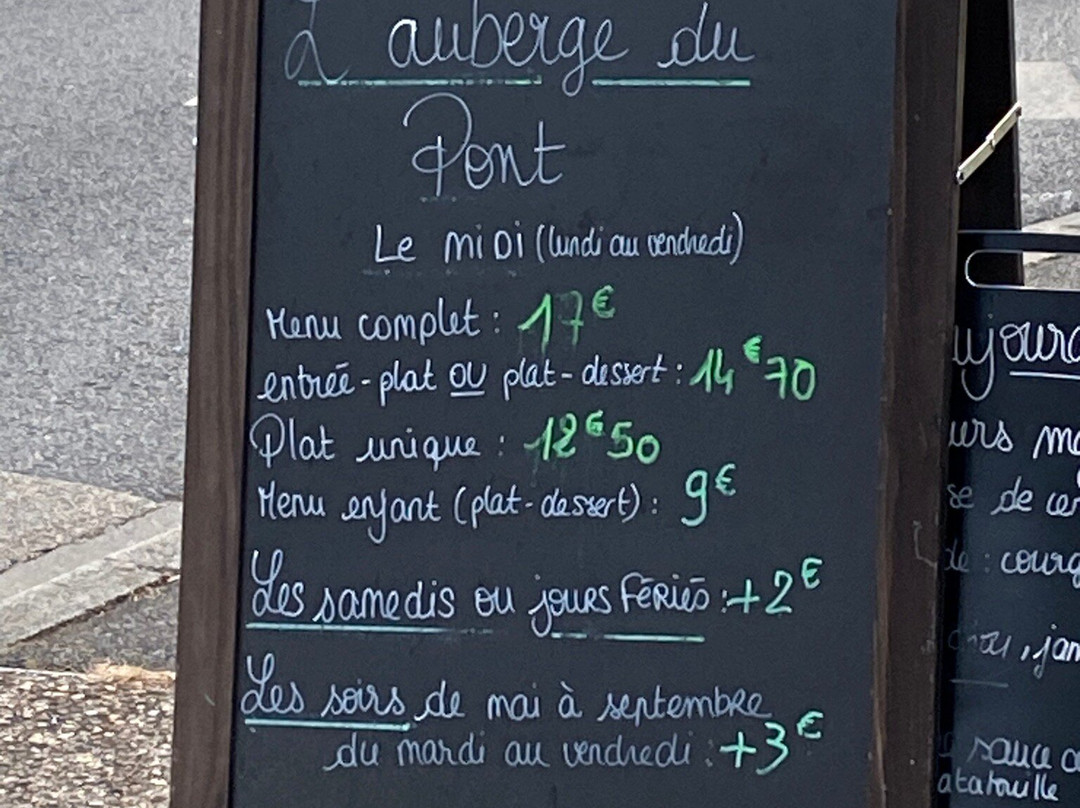 L'auberge du
Pont
Le midi (lundi au vendredi)
Menu complet : 17€
entrée - plat OU plat - dessert : 14€70
Plat unique : 12€50
Menu enfant (plat - dessert) : 9€
Les samedis ou jours FÉRIÉS : +2€
Les soirs de mai à septembre
du mardi au vendredi : +3€
ujourd
urs
se de cer
de : courg
, jam
sauce
atatouille